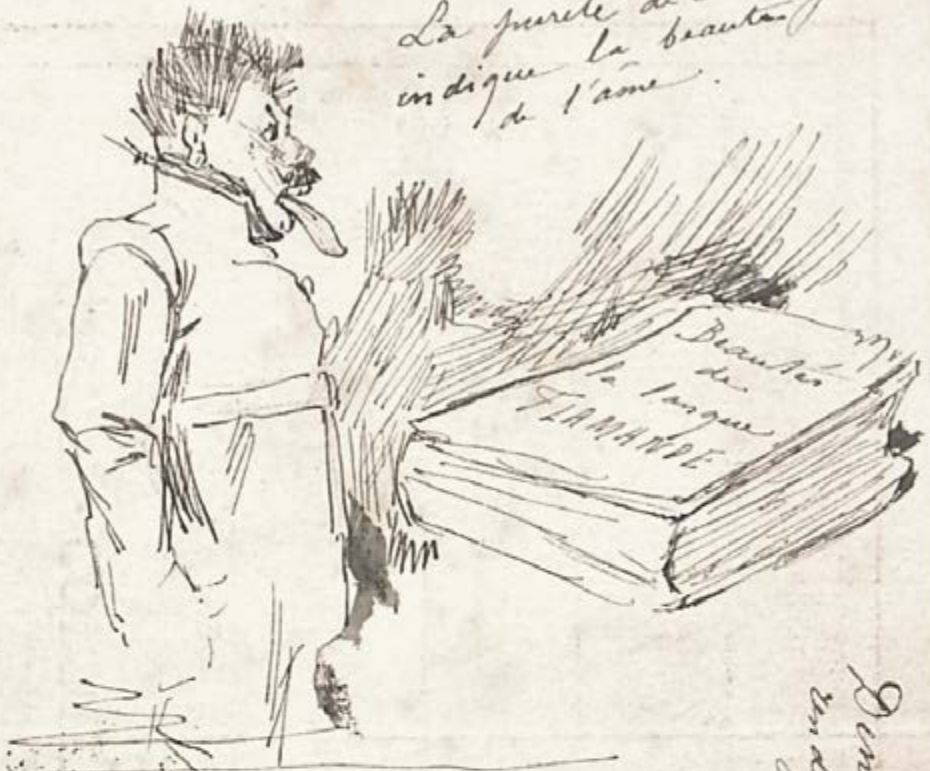 La pureté de
indique la beauté
de l'âme.
Beautés
de
la langue
FLAMANDE